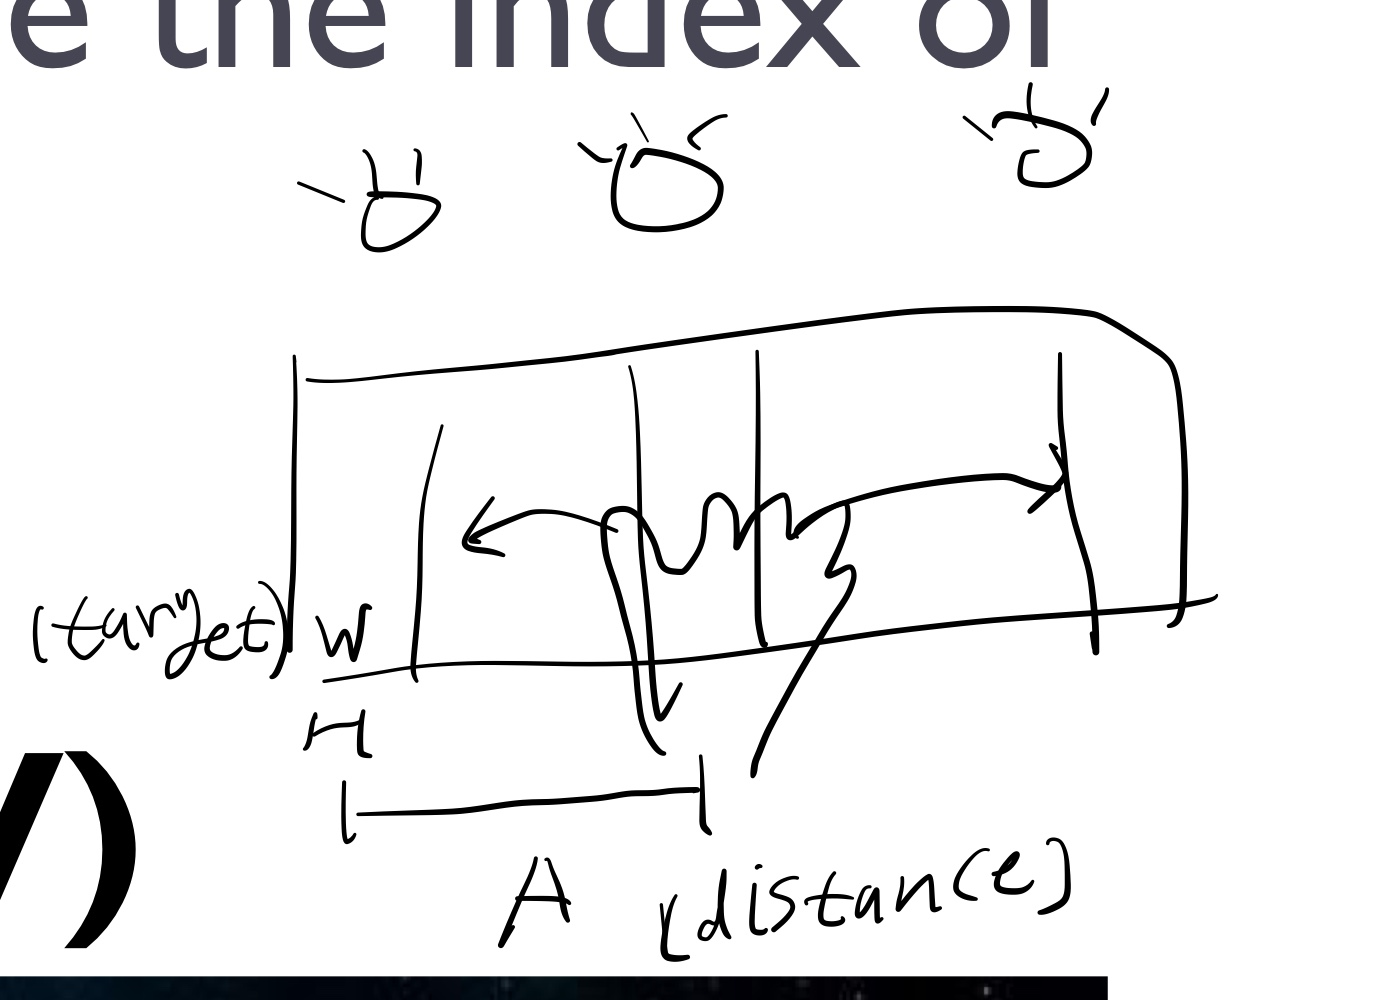 e the index of
(target) W
A (distance)
)